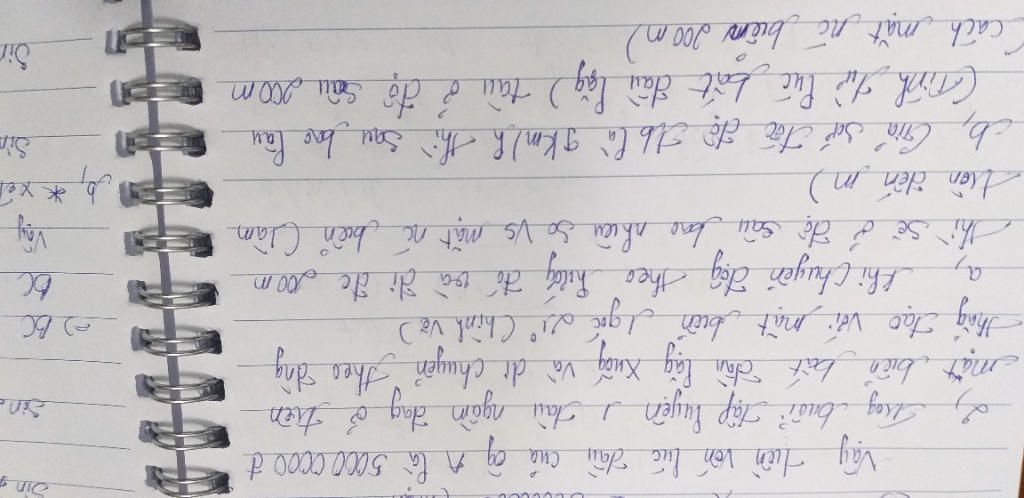 Vậy tiền vốn lúc đầu của ôg A là 50000000 đ
2, Trog buổi tập luyện 1 tàu ngầm đag ở trên
mặt biển bắt đầu lặn xuốg và di chuyển theo đg
thẳg tạo với mặt biển 1 góc 21° (hình vẽ)
a, Khi chuyển độg theo hướg đó và đi đc 200 m
thì sẽ ở độ sâu bao nhiêu so vs mặt nc biển (làm
tròn đến m)
b, Giả sử tốc độ tb là 9 km/h thì sau bao lâu
(Tính từ lúc bắt đầu lặn) tàu ở độ sâu 200 m
(cách mặt nc biển 200 m)
Sin
Sin
b, * xét
Vậy
BC
=> BC
Sin
Sin